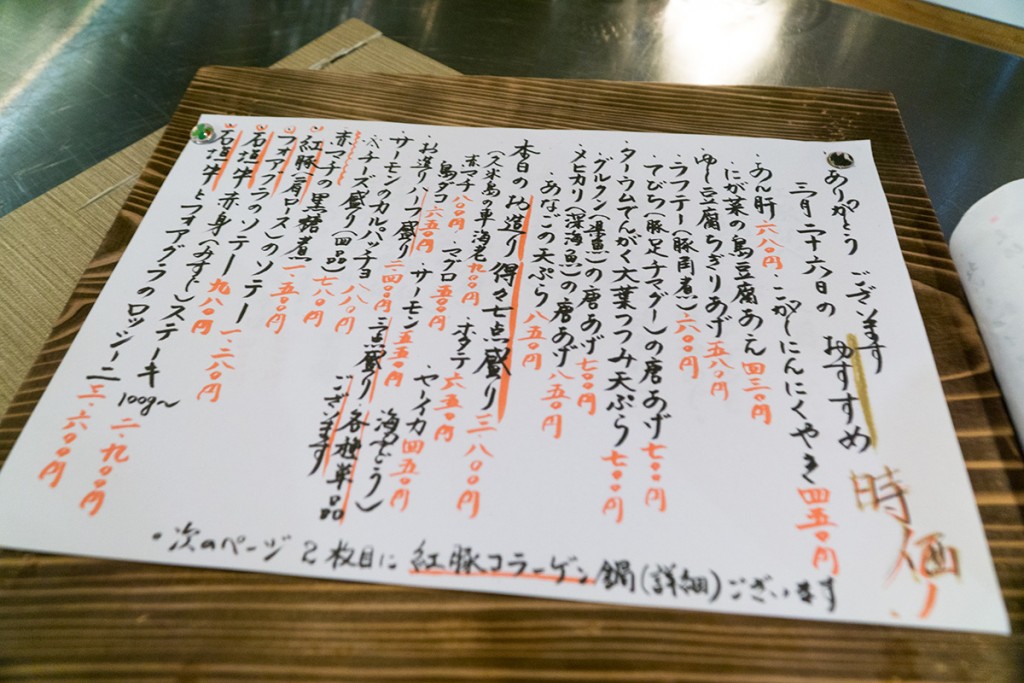 ありがとう ございます
三月二十六日の おすすめ
時価
・あん肝 六八〇円 ・こがしにんにくやき 四五〇円
・にが菜の島豆腐あえ 四三〇円
・ゆし豆腐ちぎりあげ 五八〇円
・ラフテー(豚角煮) 六〇〇円
・てびち(豚足チマグー)の唐あげ 七〇〇円
・ターウムでんがく大葉つつみ天ぷら 七〇〇円
・グルクン(県魚)の唐あげ 七〇〇円
・メヒカリ(深海魚)の唐あげ 八五〇円
・あなごの天ぷら 八五〇円
本日のお造り 得々七点盛り 三・八〇〇円
(久米島の車海老 九〇〇円 ・ホタテ 六五〇円
赤マチ 八〇〇円 ・マグロ 五五〇円 ヤーイカ 四五〇円
島ダコ 六五〇円 サーモン 五五〇円 海ぶどう)
・お造りハーフ盛り 二・四〇〇円 三点盛り 各種単品 ございます
サーモンのカルパッチョ 八八〇円
・チーズ盛り(四品) 七八〇円
赤マチの黒糖煮 一・五〇〇円
紅豚(肩ロース)のソテー 一・二八〇円
フォアグラのソテー 九八〇円
石垣牛赤身(みすじ)ステーキ 100g〜 二・九〇〇円
石垣牛とフォアグラのロッシーニ 三・六〇〇円
・次のページ 2枚目に 紅豚コラーゲン鍋(詳細)ございます